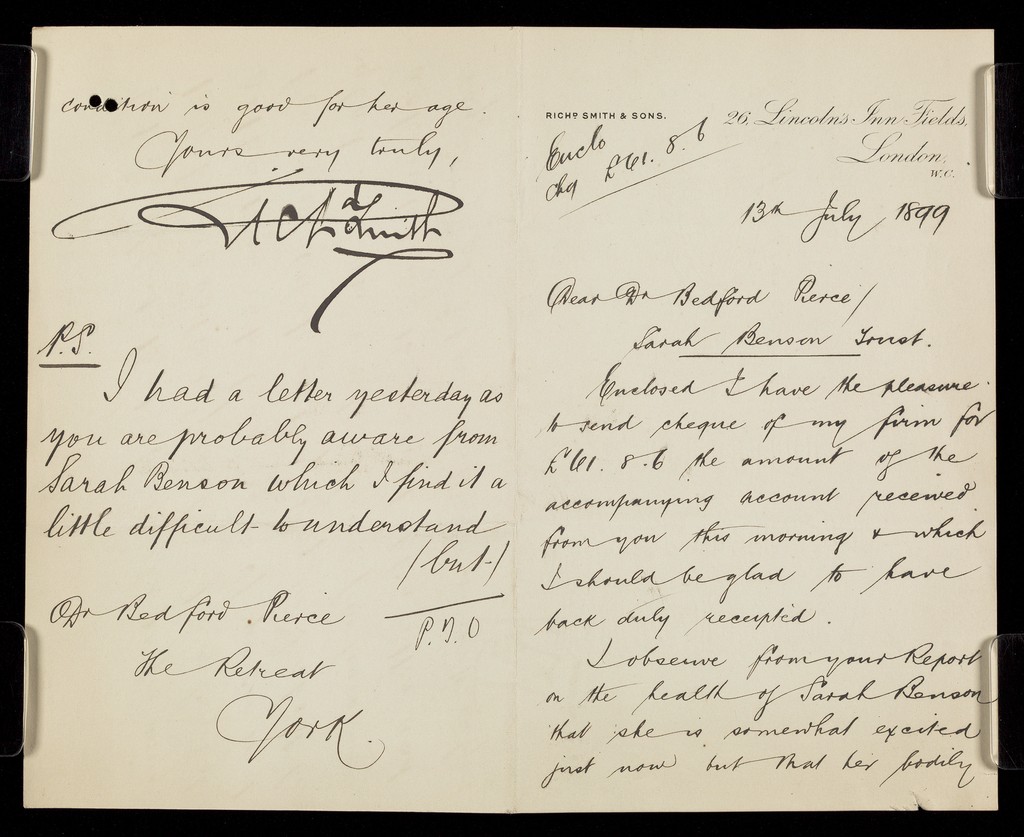 RICHD SMITH & SONS.
26, Lincoln's Inn Fields,
London,
W.C.
Enclo
chq £61. 8. 6
13th July 1899
Dear Dr Bedford Pierce/
Sarah Benson Trust.
Enclosed I have the pleasure
to send cheque of my firm for
£61. 8. 6 the amount of the
accompanying account received
from you this morning & which
I should be glad to have
back duly receipted.
I observe from your Report
on the health of Sarah Benson
that she is somewhat excited
just now but that her bodily
condition is good for her age.
Yours very truly,
Smith
P.S.
I had a letter yesterday as
you are probably aware from
Sarah Benson which I find it a
little difficult to understand
/but/
P.T.O
Dr Bedford Pierce
The Retreat
York.